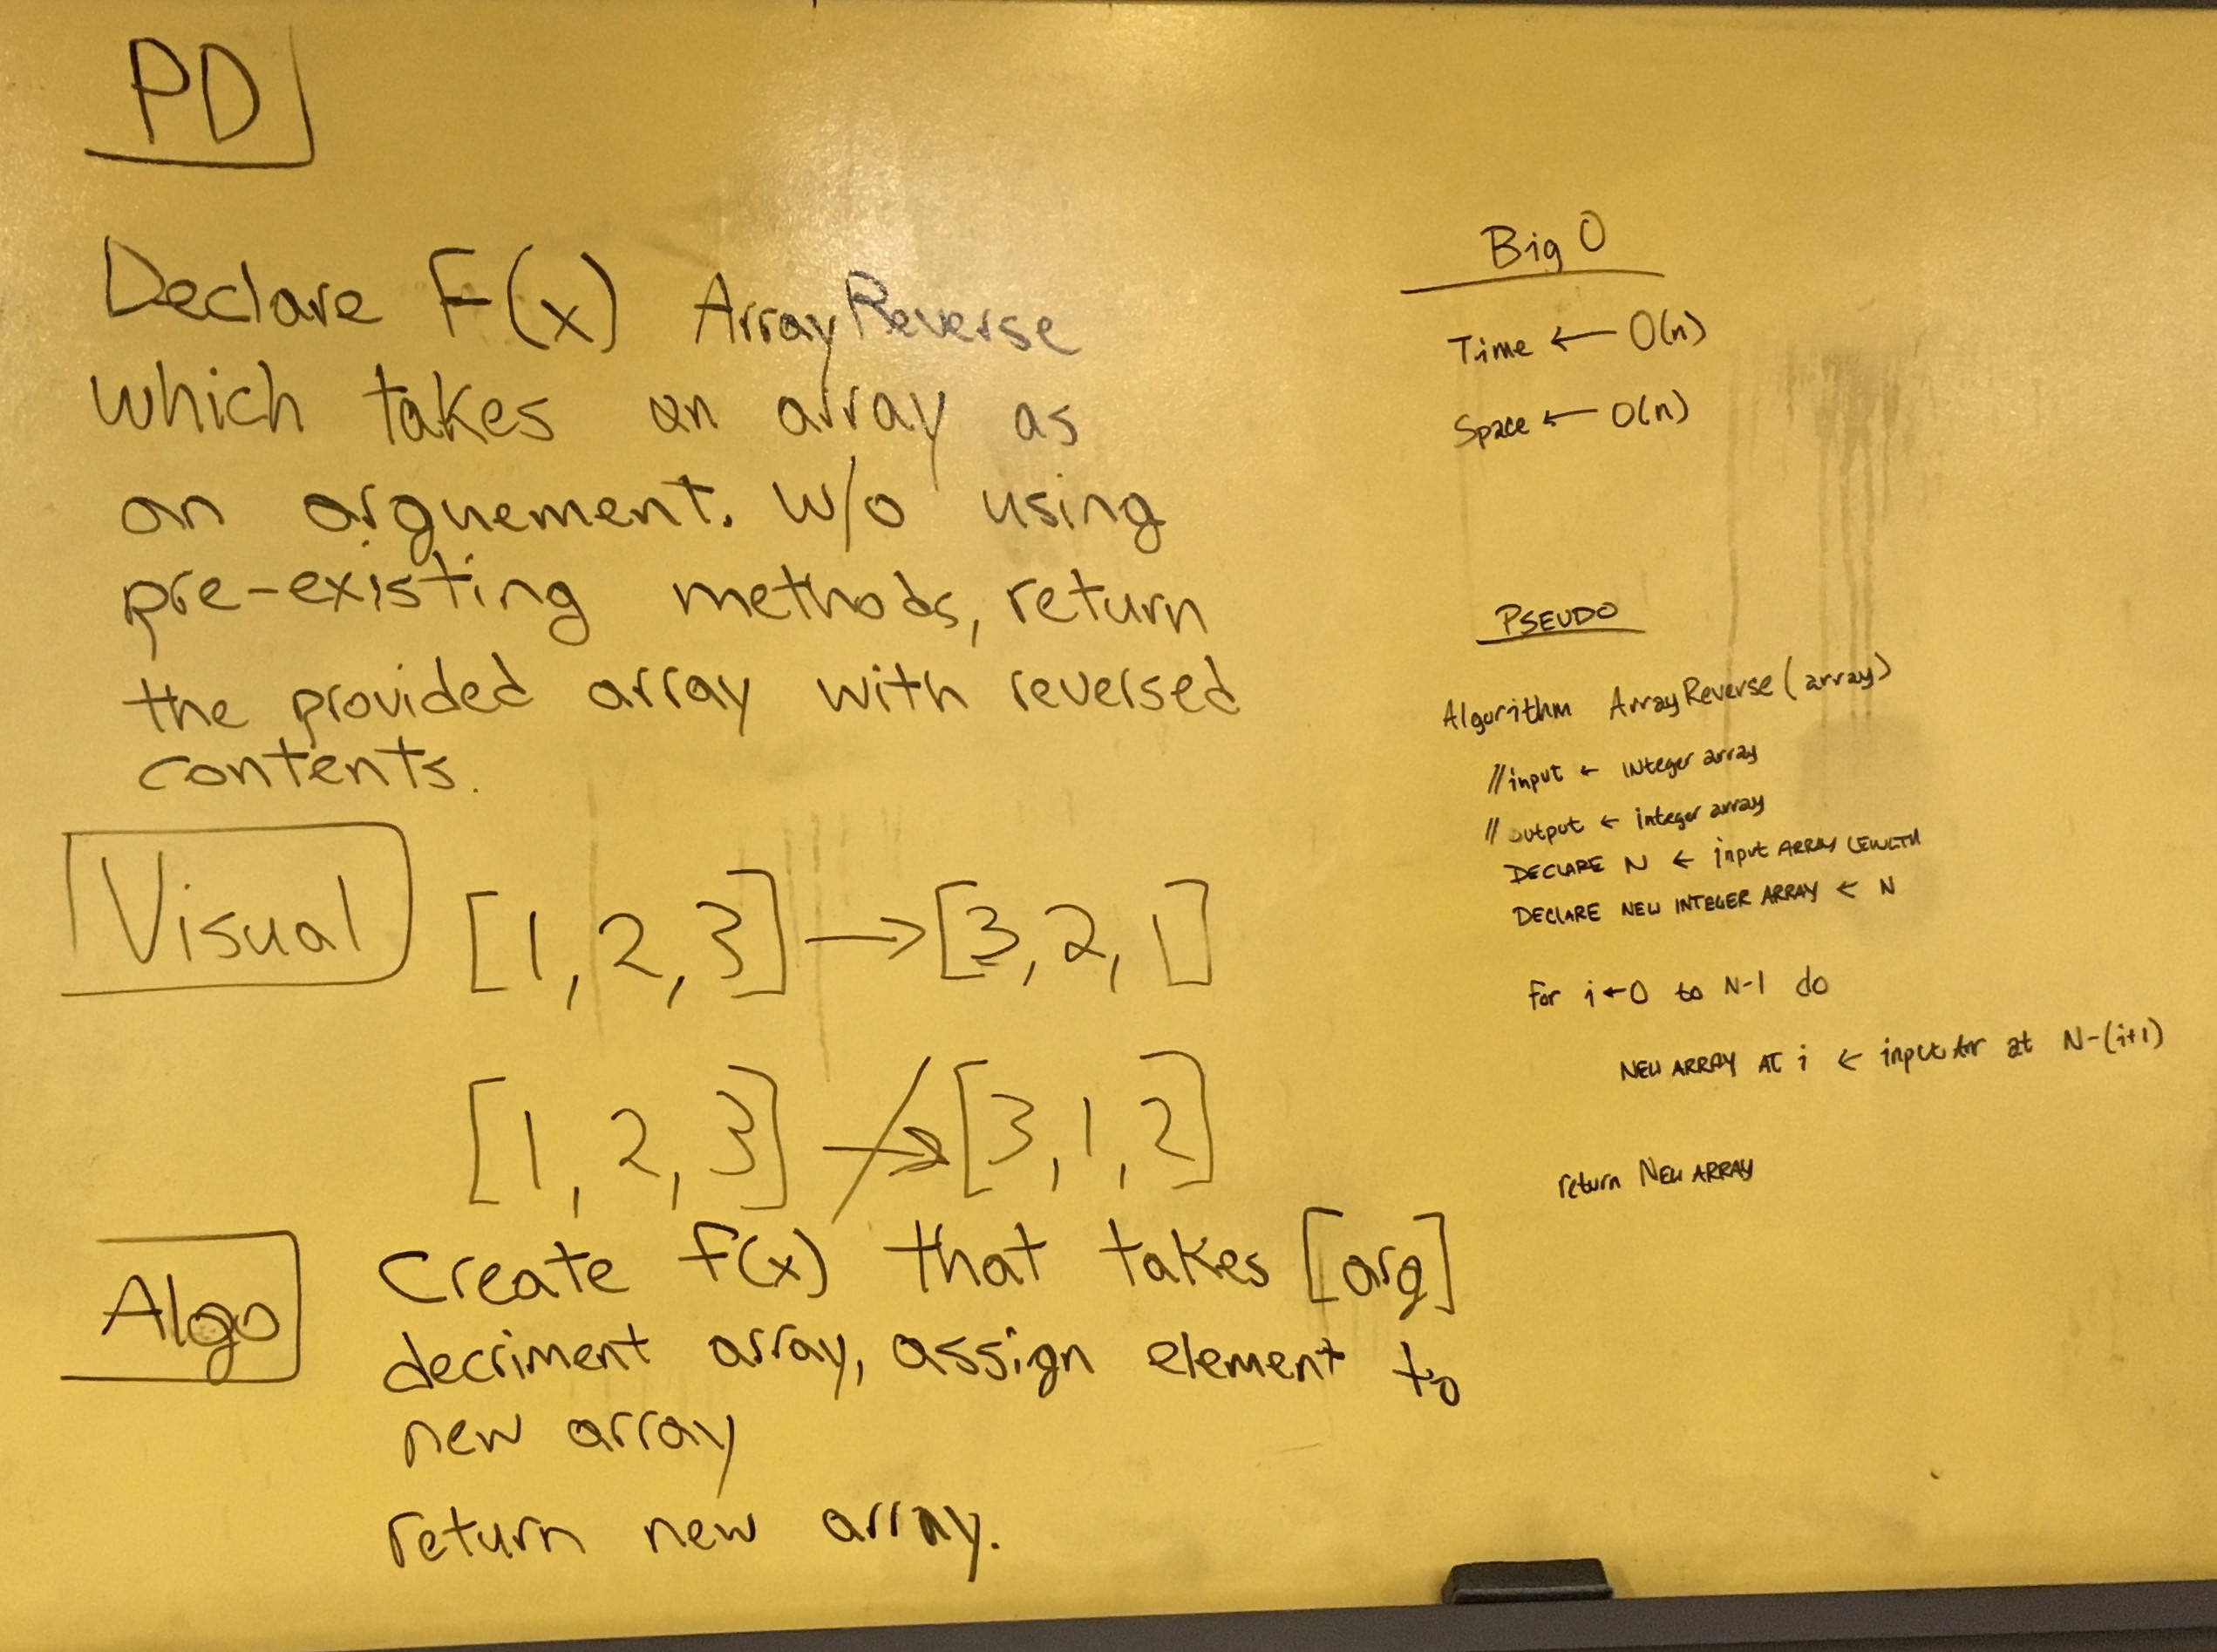 PD
Declare F(x) ArrayReverse
which takes an array as
an arguement. w/o using
pre-existing methods, return
the provided array with reversed
contents.
Visual
[1, 2, 3] → [3, 2, 1]
[1, 2, 3] ↛ [3, 1, 2]
Algo
Create f(x) that takes [arg]
decriment array, assign element to
new array
return new array.
Big O
Time ← O(n)
Space ← O(n)
PSEUDO
Algorithm ArrayReverse (array)
//input ← INteger array
// output ← integer array
DECLARE N ← input ARRAY LENGTH
DECLARE NEW INTEGER ARRAY ← N
for i←0 to N-1 do
NEW ARRAY AT i ← input Arr at N-(i+1)
return NEW ARRAY